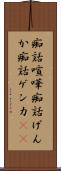 痴話喧嘩痴話げん
か痴話ゲンカ